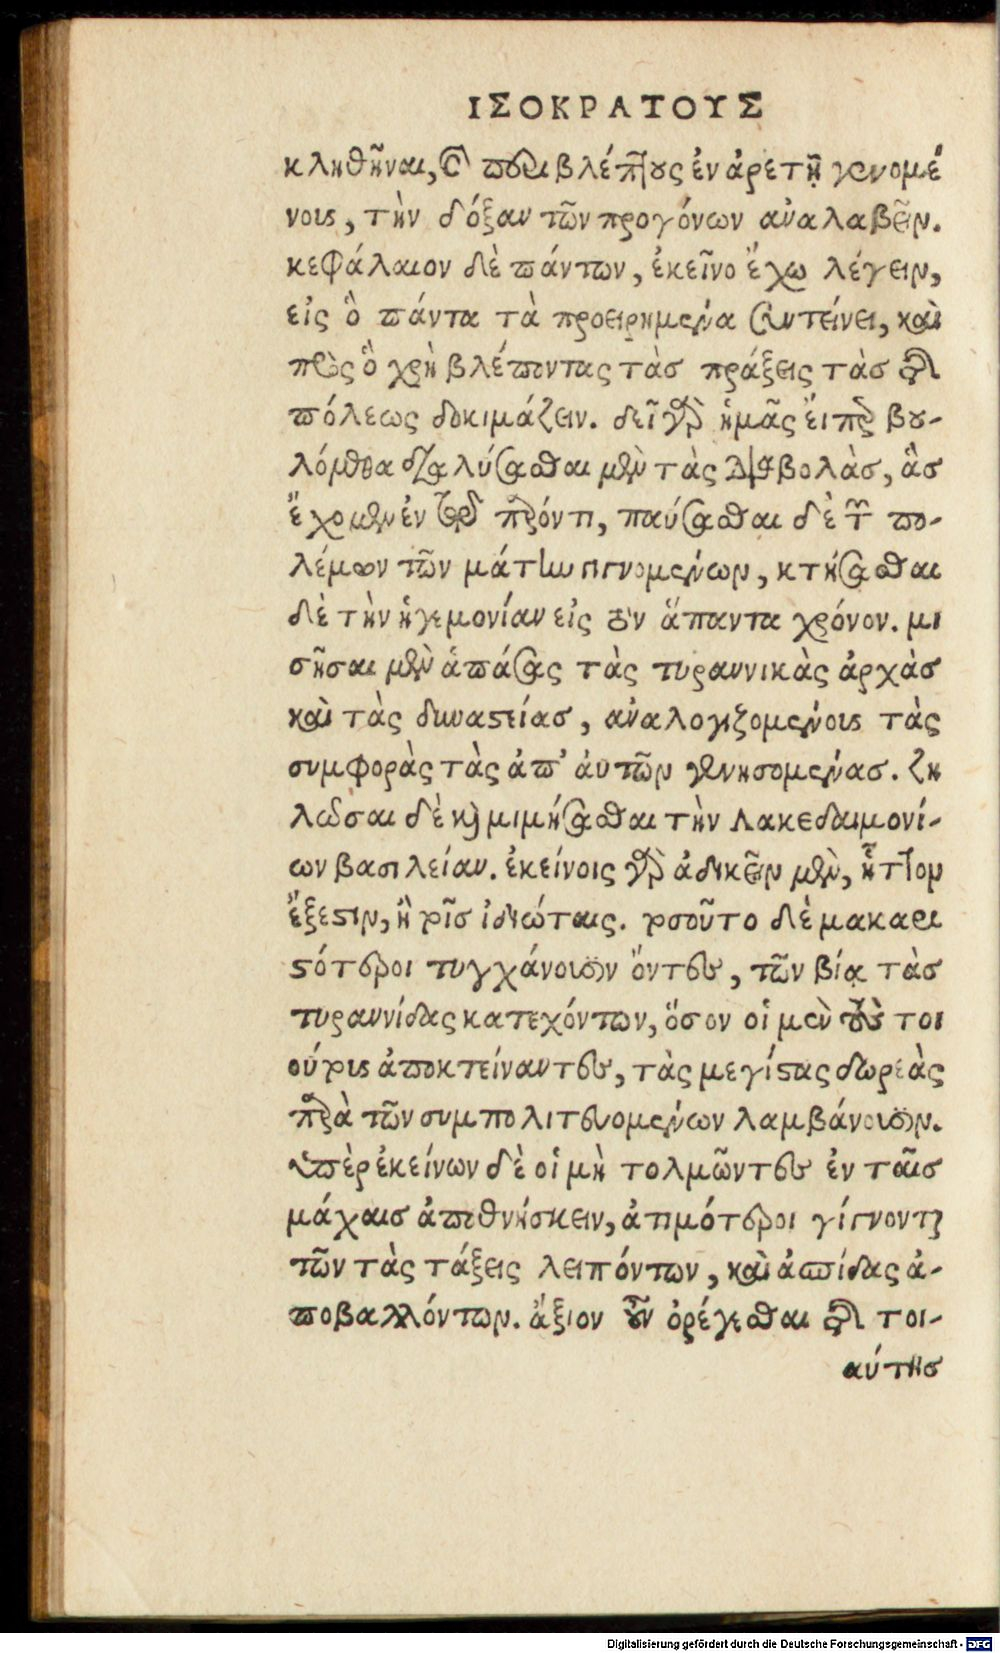 ΙΣΟΚΡΑΤΟΥΣ
κληθῆναι, καὶ περιβλέπτους ἐν ἀρετῇ γενομέ
νους, τὴν δόξαν τῶν προγόνων ἀναλαβεῖν.
κεφάλαιον δὲ πάντων, ἐκεῖνο ἔχω λέγειν,
εἰς ὃ πάντα τὰ προειρημένα συντείνει, καὶ
πρὸς ὃ χρὴ βλέποντας τὰσ πράξεις τὰσ τῆς
πόλεως δοκιμάζειν. δεῖ γὰρ ἡμᾶς εἴπερ βου-
λόμεθα διαλύσασθαι μὲν τὰς διαβολὰσ, ἃσ
ἔχομεν ἐν τῷ παρόντι, παύσασθαι δὲ τῶν πο-
λέμων τῶν μάτην γιγνομένων, κτήσασθαι
δὲ τὴν ἡγεμονίαν εἰς τὸν ἅπαντα χρόνον. μι
σῆσαι μὲν ἁπάσας τὰς τυραννικὰς ἀρχὰσ
καὶ τὰς δυναστείασ, ἀναλογιζομένους τὰς
συμφορὰς τὰς ἀπ' αὐτῶν γενησομένασ. ζη
λῶσαι δὲ καὶ μιμήσασθαι τὴν Λακεδαιμονί-
ων βασιλείαν. ἐκείνοις γὰρ ἀδικεῖν μὲν, ἧττον
ἔξεστιν, ἢ τοῖσ ἰδιώταις. τοσοῦτο δὲ μακαρι
στότεροι τυγχάνουσιν ὄντες, τῶν βίᾳ τὰσ
τυραννίδας κατεχόντων, ὅσον οἱ μὲν τοὺς τοι
ούτους ἀποκτείναντες, τὰς μεγίστας δωρεὰς
παρὰ τῶν συμπολιτευομένων λαμβάνουσιν.
ὑπὲρ ἐκείνων δὲ οἱ μὴ τολμῶντες ἐν ταῖσ
μάχαισ ἀποθνήσκειν, ἀτιμότεροι γίγνονται
τῶν τὰς τάξεις λειπόντων, καὶ ἀσπίδας ἀ-
ποβαλλόντων. ἄξιον οὖν ὀρέγεσθαι τῆς τοι-
αύτησ
Digitalisierung gefördert durch die Deutsche Forschungsgemeinschaft - DFG